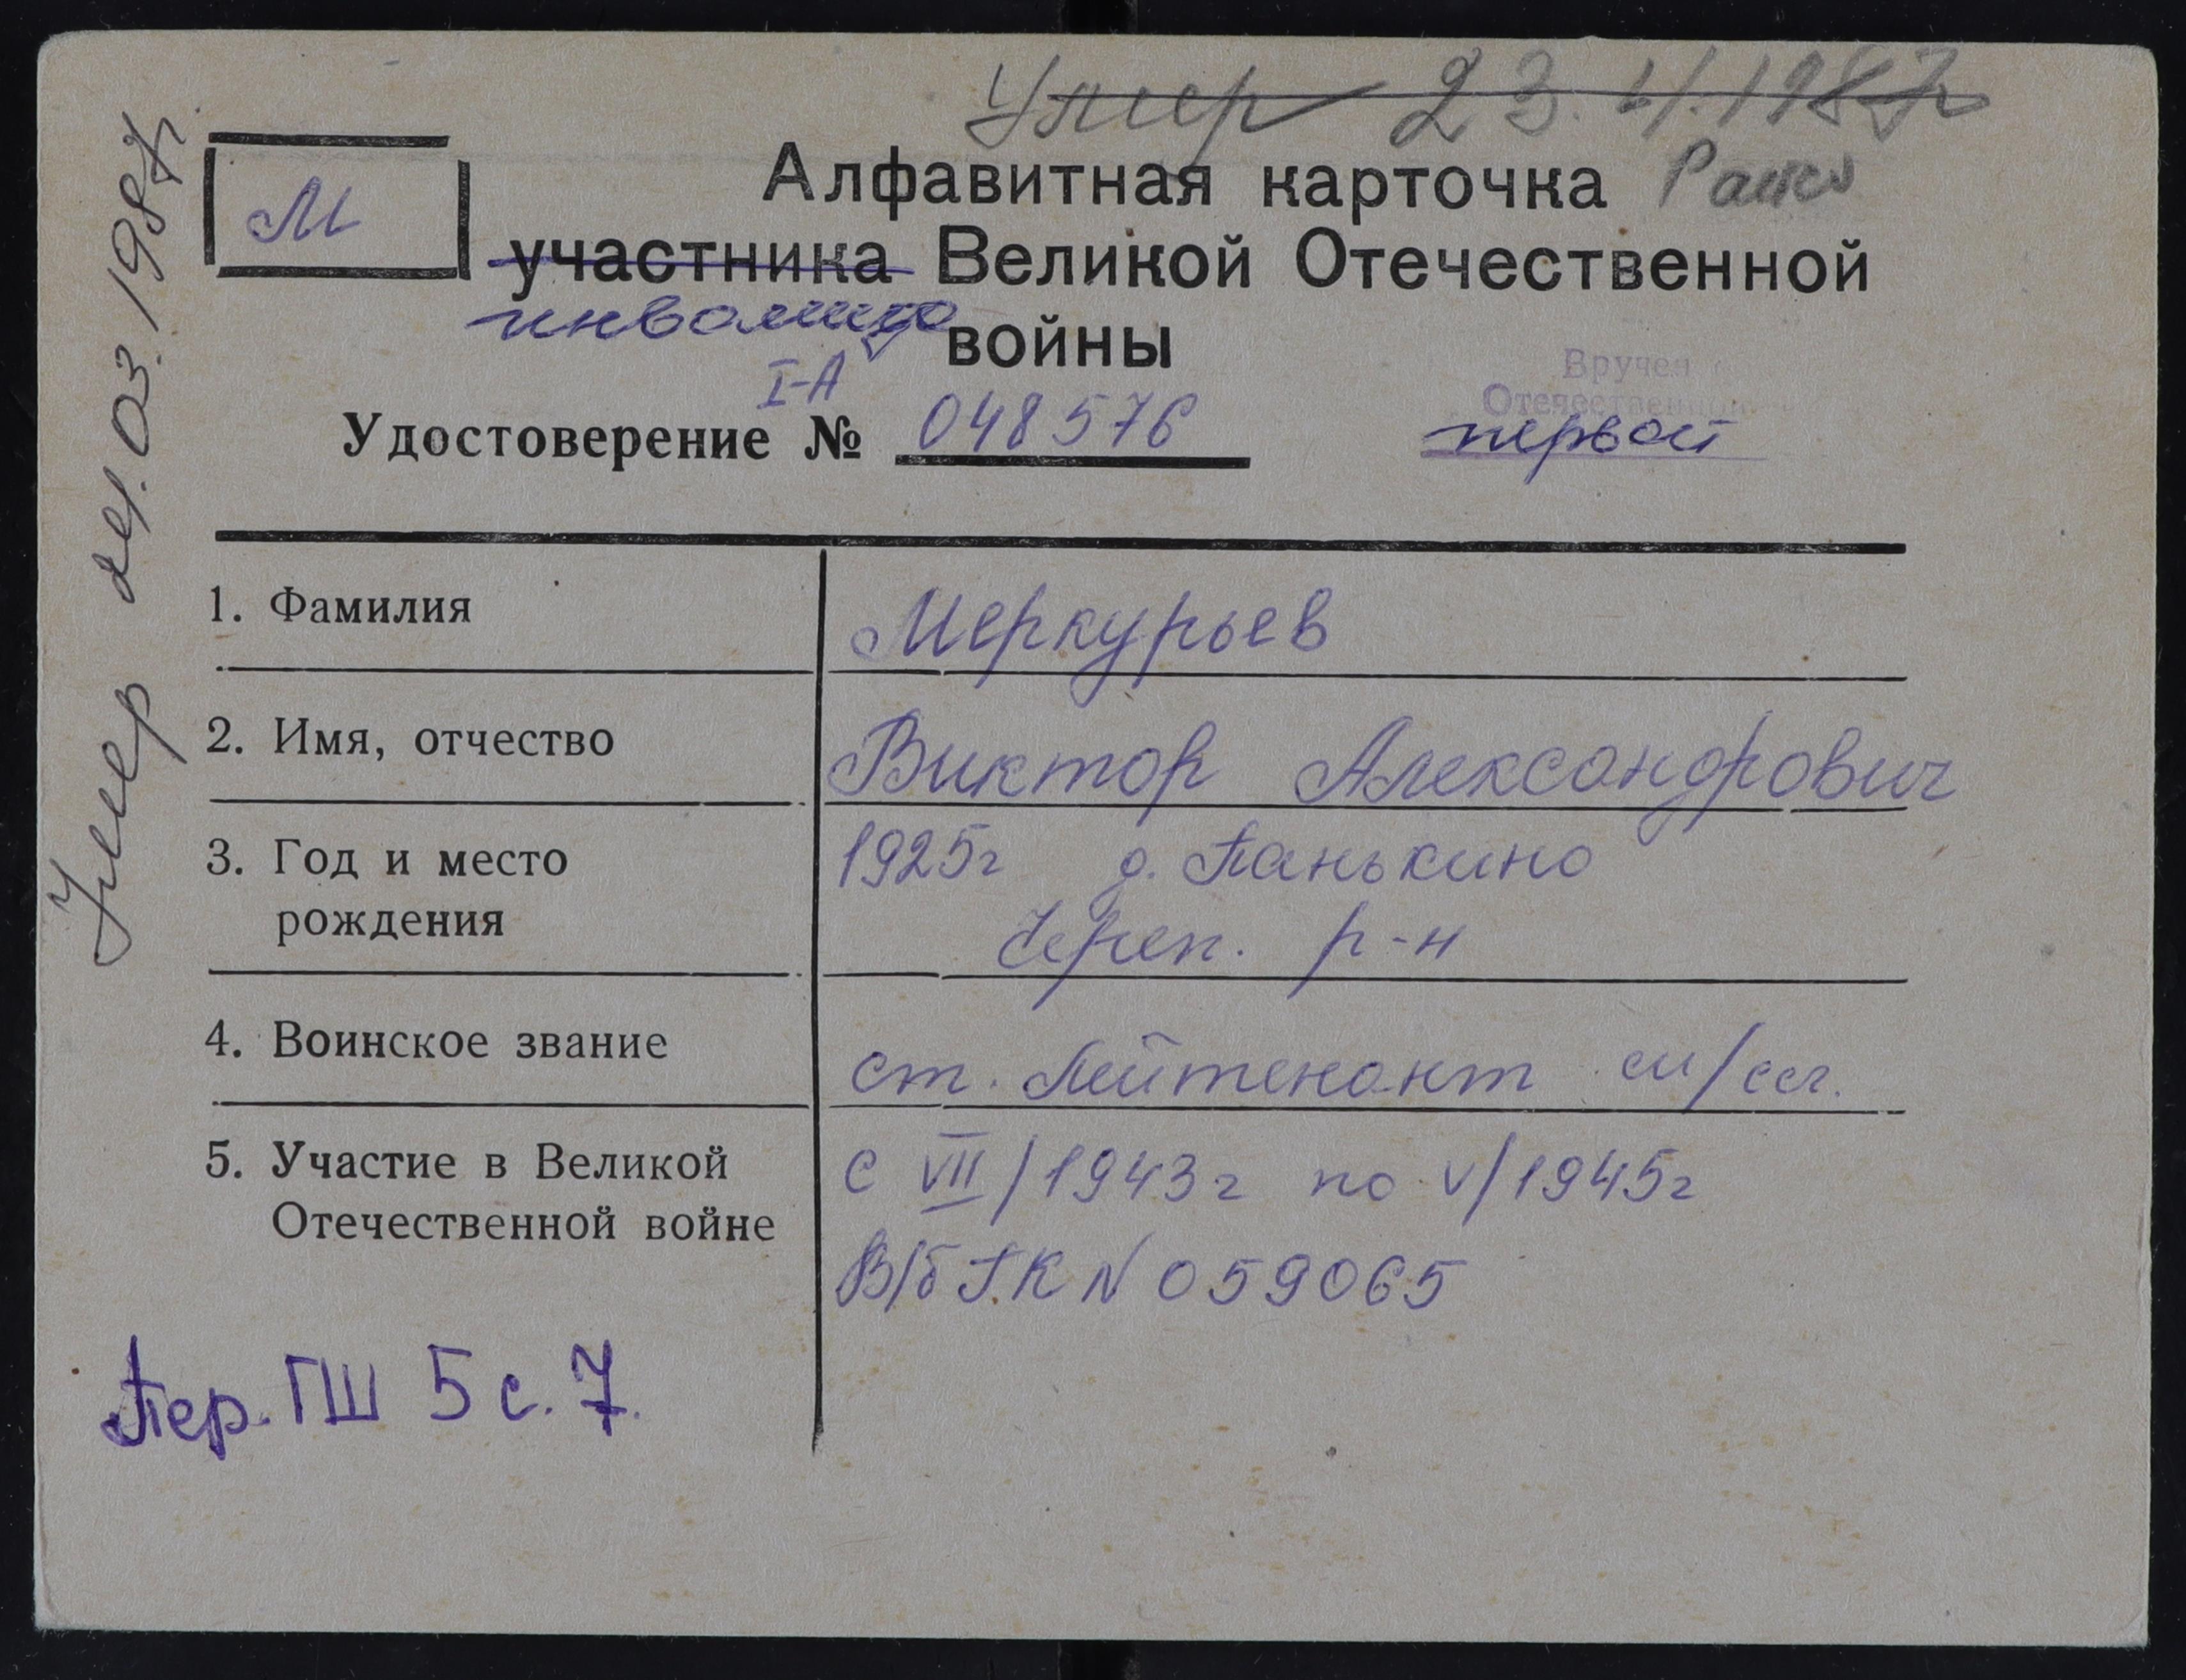 Умер 23.4.1987г
Алфавитная карточка
М
участника Великой Отечественной
инвалида
войны
I-А
Вручен
Отечественной
Удостоверение № 048576
первой
1. Фамилия Меркурьев
2. Имя, отчество Виктор Александрович
3. Год и место 1925г д. Панькино
рождения Череп. р-н
4. Воинское звание ст. Лейтенант м/сл.
5. Участие в Великой с VII/1943г по V/1945г
Отечественной войне
В/б ГК N 059065
Пер. ГШ 5 с. 7.
Умер 24.03.1987г